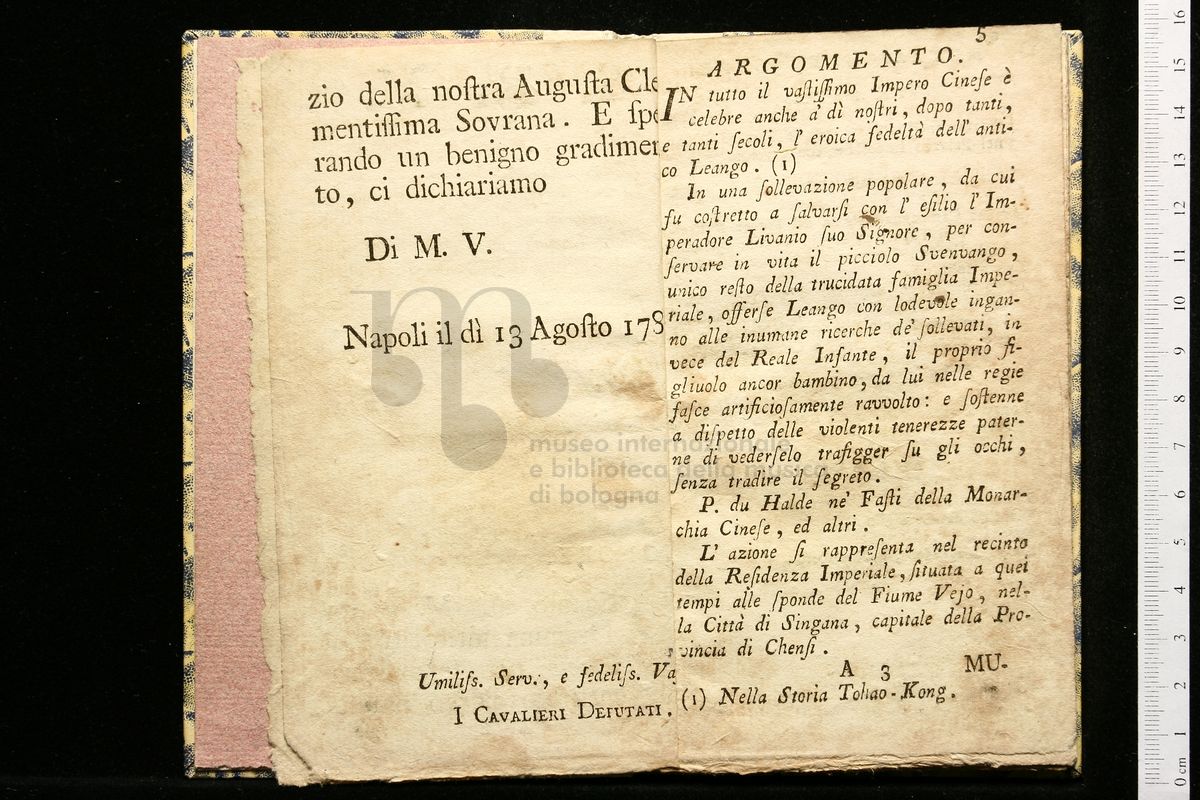 zio della nostra Augusta Cle
mentissima Sovrana. E spe
rando un benigno gradimen
to, ci dichiariamo
Di M. V.
Napoli il dì 13 Agosto 178
Umiliss. Serv., e fedeliss. Va
I CAVALIERI DEPUTATI.
5
ARGOMENTO.
IN tutto il vastissimo Impero Cinese è
celebre anche a' dì nostri, dopo tanti,
e tanti secoli, l' eroica fedeltà dell' anti-
co Leango. (1)
In una sollevazione popolare, da cui
fu costretto a salvarsi con l' esilio l' Im-
peradore Livanio suo Signore, per con-
servare in vita il picciolo Svenvango,
unico resto della trucidata famiglia Impe-
riale, offerse Leango con lodevole ingan-
no alle inumane ricerche de' sollevati, in
vece del Reale Infante, il proprio fi-
gliuolo ancor bambino, da lui nelle regie
fasce artificiosamente ravvolto: e sostenne
a dispetto delle violenti tenerezze pater-
ne di vederselo trafigger su gli occhi,
senza tradire il segreto.
P. du Halde ne' Fasti della Monar-
chia Cinese, ed altri.
L' azione si rappresenta nel recinto
della Residenza Imperiale, situata a quei
tempi alle sponde del Fiume Vejo, nel-
la Città di Singana, capitale della Pro-
vincia di Chensi.
A 3 MU-
(1) Nella Storia Tchao-Kong.
museo internazionale
e biblioteca della musica
di bologna
0 cm 1 2 3 4 5 6 7 8 9 10 11 12 13 14 15 16